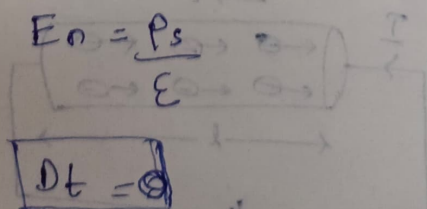 En = ρs/ε
Dt = 0